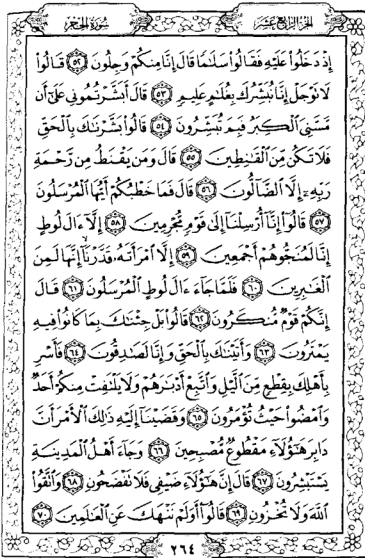 الجزء الرابع عشر
سورة الحجر
إِذْ دَخَلُوا۟ عَلَيْهِ فَقَالُوا۟ سَلَٰمًا قَالَ إِنَّا مِنكُمْ وَجِلُونَ ٥٢ قَالُوا۟
لَا تَوْجَلْ إِنَّا نُبَشِّرُكَ بِغُلَٰمٍ عَلِيمٍ ٥٣ قَالَ أَبَشَّرْتُمُونِى عَلَىٰٓ أَن
مَّسَّنِىَ ٱلْكِبَرُ فَبِمَ تُبَشِّرُونَ ٥٤ قَالُوا۟ بَشَّرْنَٰكَ بِٱلْحَقِّ
فَلَا تَكُن مِّنَ ٱلْقَٰنِطِينَ ٥٥ قَالَ وَمَن يَقْنَطُ مِن رَّحْمَةِ
رَبِّهِۦٓ إِلَّا ٱلضَّآلُّونَ ٥٦ قَالَ فَمَا خَطْبُكُمْ أَيُّهَا ٱلْمُرْسَلُونَ
٥٧ قَالُوٓا۟ إِنَّآ أُرْسِلْنَآ إِلَىٰ قَوْمٍ مُّجْرِمِينَ ٥٨ إِلَّآ ءَالَ لُوطٍ
إِنَّا لَمُنَجُّوهُمْ أَجْمَعِينَ ٥٩ إِلَّا ٱمْرَأَتَهُۥ قَدَّرْنَآ إِنَّهَا لَمِنَ
ٱلْغَٰبِرِينَ ٦٠ فَلَمَّا جَآءَ ءَالَ لُوطٍ ٱلْمُرْسَلُونَ ٦١ قَالَ
إِنَّكُمْ قَوْمٌ مُّنكَرُونَ ٦٢ قَالُوا۟ بَلْ جِئْنَٰكَ بِمَا كَانُوا۟ فِيهِ
يَمْتَرُونَ ٦٣ وَأَتَيْنَٰكَ بِٱلْحَقِّ وَإِنَّا لَصَٰدِقُونَ ٦٤ فَأَسْرِ
بِأَهْلِكَ بِقِطْعٍ مِّنَ ٱلَّيْلِ وَٱتَّبِعْ أَدْبَٰرَهُمْ وَلَا يَلْتَفِتْ مِنكُمْ أَحَدٌ
وَٱمْضُوا۟ حَيْثُ تُؤْمَرُونَ ٦٥ وَقَضَيْنَآ إِلَيْهِ ذَٰلِكَ ٱلْأَمْرَ أَنَّ
دَابِرَ هَٰٓؤُلَآءِ مَقْطُوعٌ مُّصْبِحِينَ ٦٦ وَجَآءَ أَهْلُ ٱلْمَدِينَةِ
يَسْتَبْشِرُونَ ٦٧ قَالَ إِنَّ هَٰٓؤُلَآءِ ضَيْفِى فَلَا تَفْضَحُونِ ٦٨ وَٱتَّقُوا۟
ٱللَّهَ وَلَا تُخْزُونِ ٦٩ قَالُوٓا۟ أَوَلَمْ نَنْهَكَ عَنِ ٱلْعَٰلَمِينَ ٧٠
٢٦٤